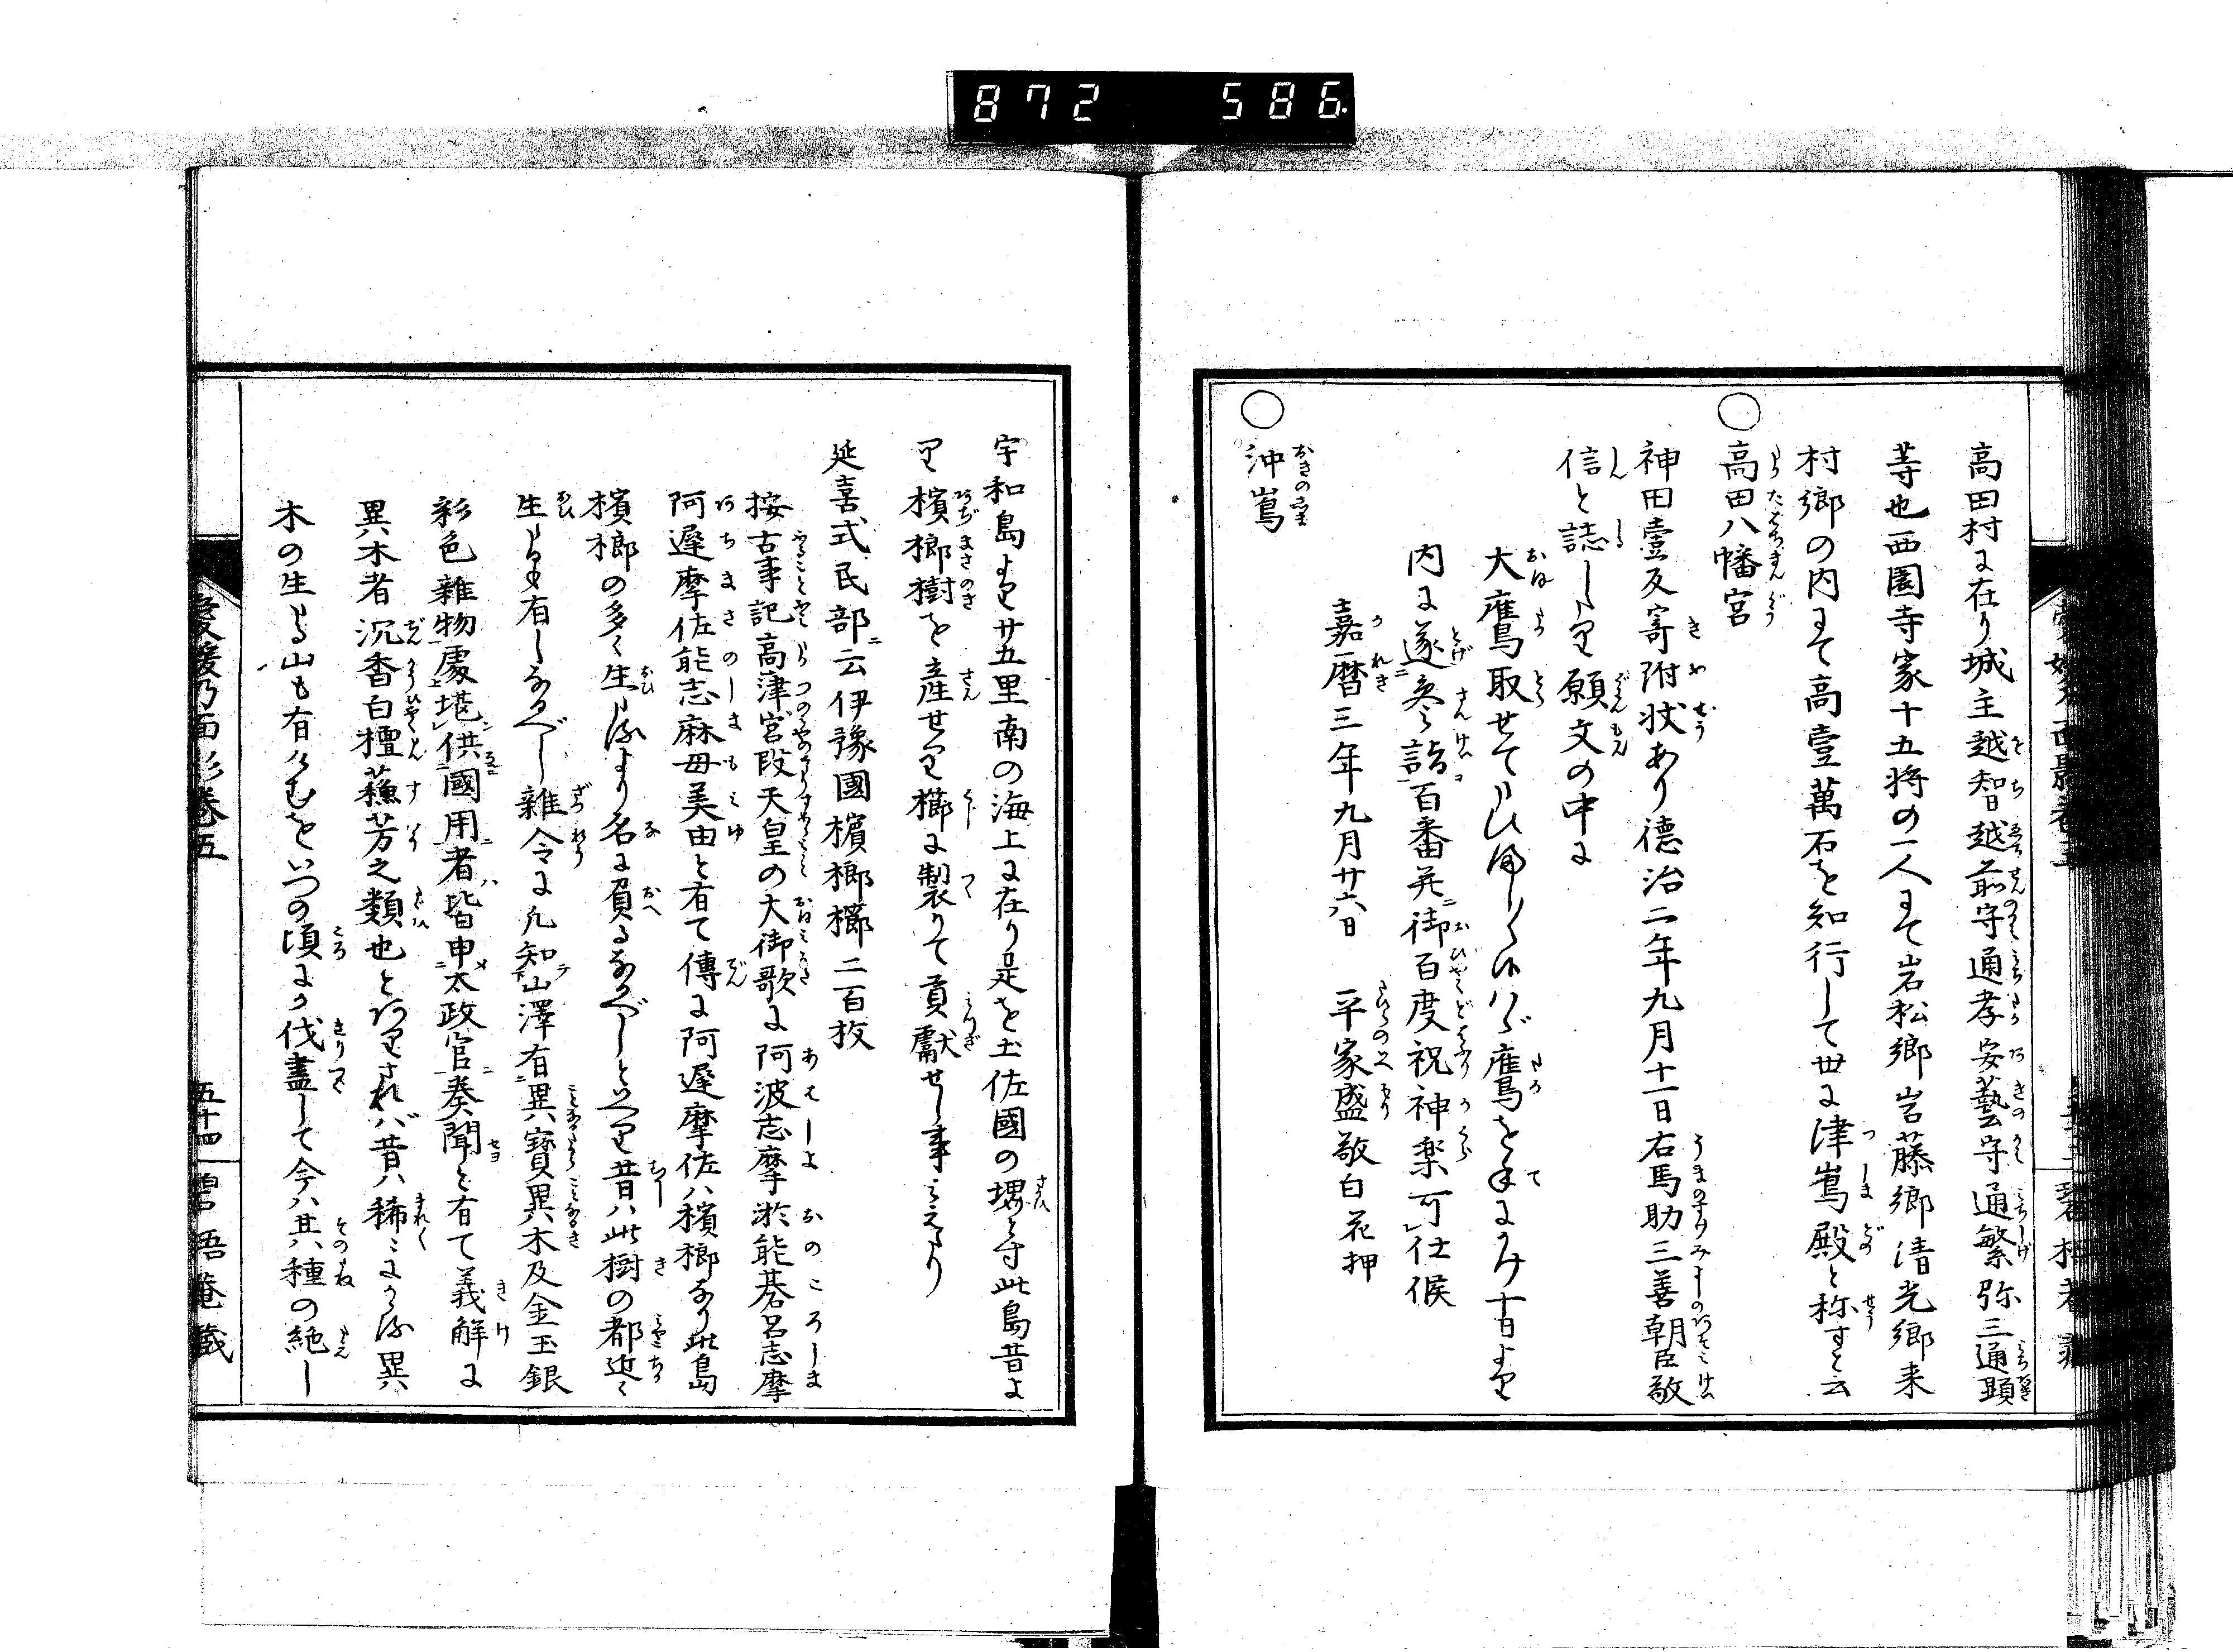 872 586
高田村に在り城主越智越前守通孝安藝守通繁弥三通顕
等也西園寺家十五将の一人にて岩松郷岩藤郷清光郷来
村郷の内にて高壹萬石を知行して世に津嶌殿と称すと云
○高田八幡宮
神田壹反寄附状あり徳治二年九月十一日右馬助三善朝臣敬
信と誌したり願文の中に
大鷹取せて
内に遂参詣百番并御百度祝神楽可仕候
嘉暦三年九月廿六日 平家盛敬白花押
○沖嶌
宇和島より廿五里南の海上に在り是を土佐國の堺とす此島昔よ
り檳榔樹を産せり櫛に製りて貢獻せし事みえたり
延喜式民部ニ云伊豫國檳榔櫛二百枚
按古事記高津宮段天皇の大御歌に阿波志摩淤能碁呂志摩
阿遲摩佐能志麻母美由と有て傳に阿遲摩佐ハ檳榔なり此島
檳榔の多く生たるより名に負るなべしといへり昔ハ此樹の都近く
生たるも有しなるべし雜令に凡知山澤有異寶異木及金玉銀
彩色雜物處堪供國用者皆申太政官奏聞と有て義解に
異木者沉香白檀蘓芳之類也とありされバ昔ハ稀々にかゝる異
木の生たる山も有けむをいつの頃にか伐盡して今ハ其種の絶し
愛媛乃面影巻五
五十四